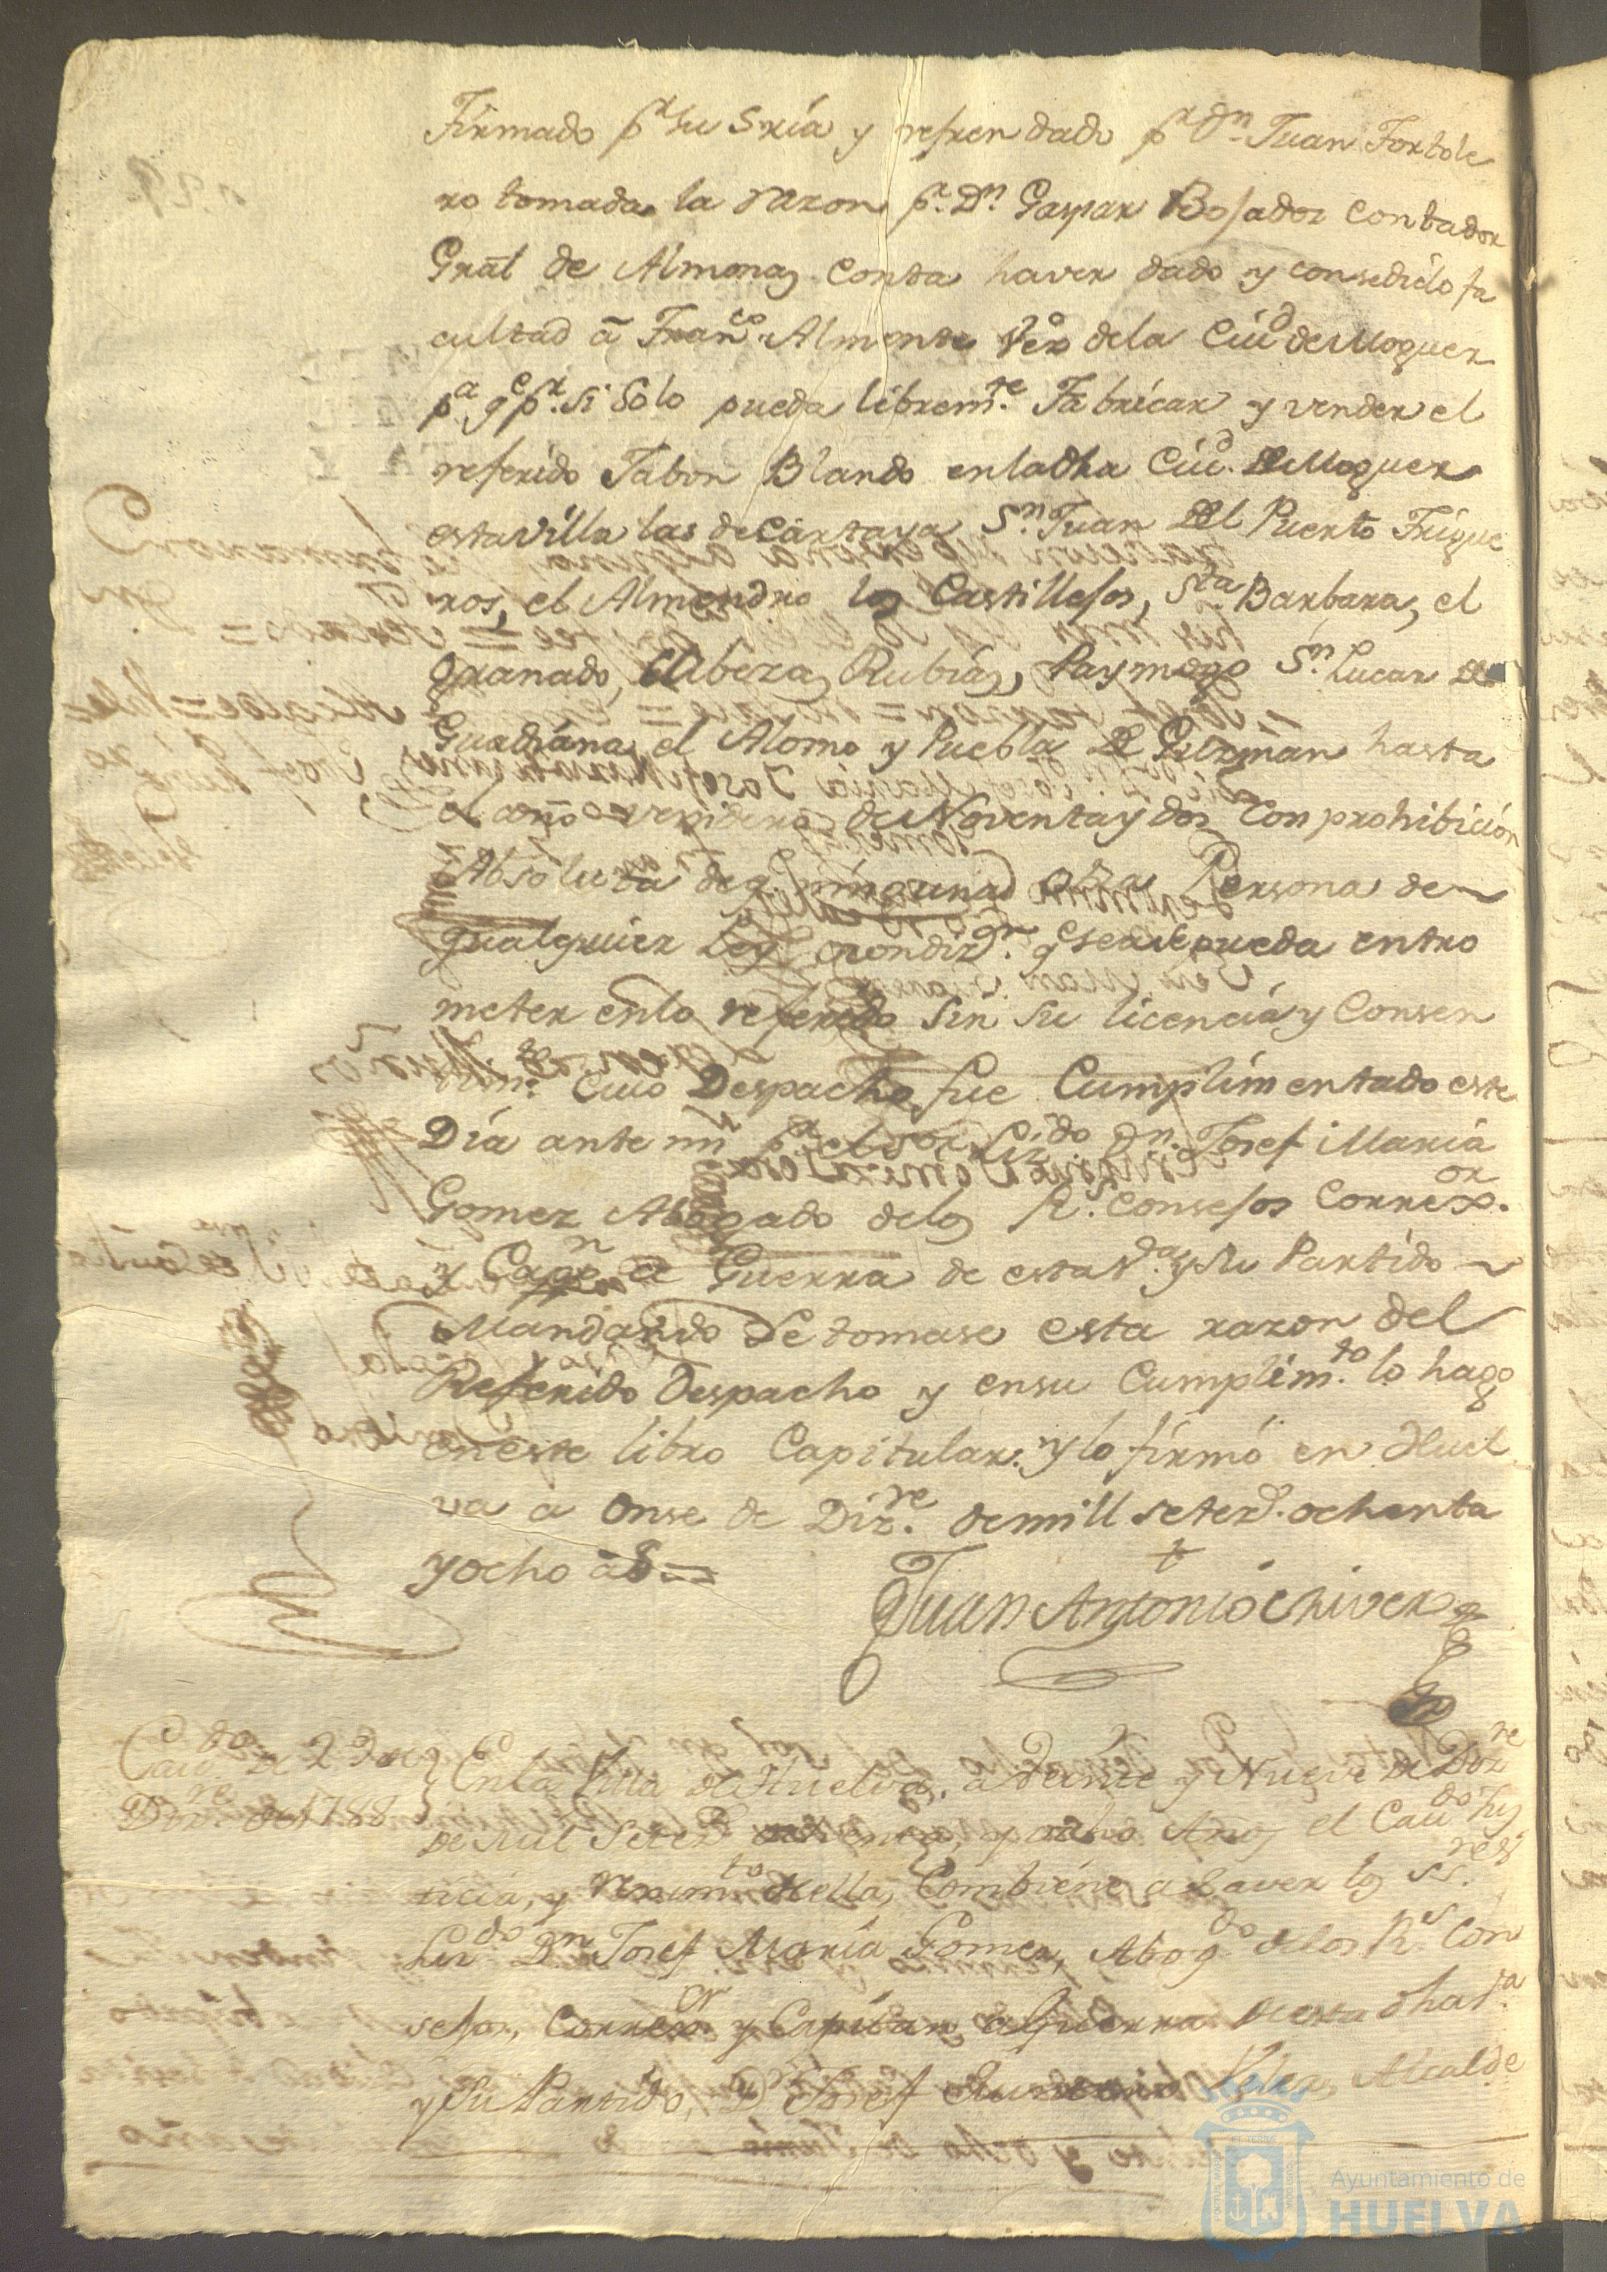 Firmado pr su Sría y refrendado pr Dn Juan Fortole
ro tomada la razon pr Dn Gaspar Bosador Contador
Gral de Almonas Consta haver dado y consedido fa
cultad â Franco Almonte Vezo dela Ciud de Moguer
pa qe pr si Solo pueda libremte Fabricar y vender el
referido Jabon Blando enladha Ciud de Moguer
esta Villa las de Cartaya Sn Juan del Puerto Trigue
ros, el Almendro los Castillejos, Sta Barbara, el
granado, Cabezas Rubias, Paymogo Sn Lucar de
Guadiana, el Alomo y Puebla de Guzman hasta
el año venidero de Noventa y dos Con prohibición
Absoluta de q ninguna otra Persona de
qualquier Ley condizn qe sea se pueda entro
meter enlo referido Sin Su licencia y Consen
timto Cuio Despacho fue Cumplimentado este
Día ante mi pr el Sor Lizdo Dn Josef Maria
Gomez Abogado delos Rs Consejos Correxor
y Capn â Guerra de esta Va y Su Partido
Mandando Se tomase esta razon del
Referido Despacho y ensu Cumplimto lo hago
en este libro Capitular y lo firmó en Huel
va a Onse de Dizre demill seteзd ochenta
y ocho as =
Juan Antonio Chiver
Cavdo de 29 de
Dizre de 1788
Enla Villa de Huelva a Veinte y Nueve de Dizre
de Mil Seted ochenta y ocho Años el Cavdo Jus
ticia, y Reximto della, Combiene a Saver los SSres
Lizdo Dn Josef Maria Gomez, Abogdo delos Rs Con
sejos, Correxor y Capitan a Guerra de esta dha Va
y Su Partido, Dn Josef Velez, Alcalde
Ayuntamiento de
HUELVA